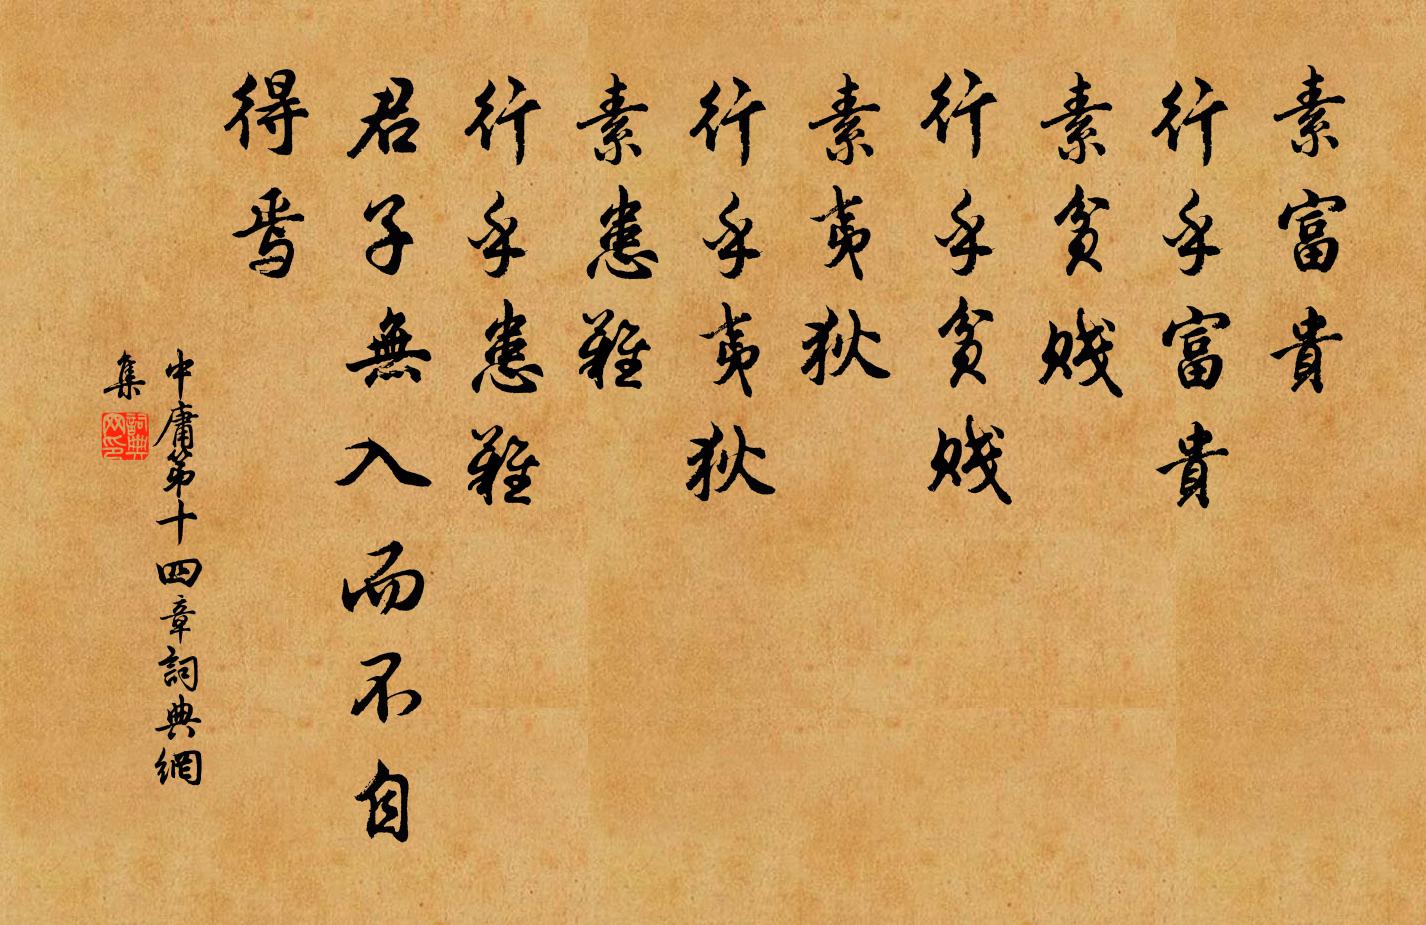 素富貴
行乎富貴
素貧賤
行乎貧賤
素夷狄
行乎夷狄
素患難
行乎患難
君子無入而不自
得焉
中庸第十四章詞典網
集
詞典网印